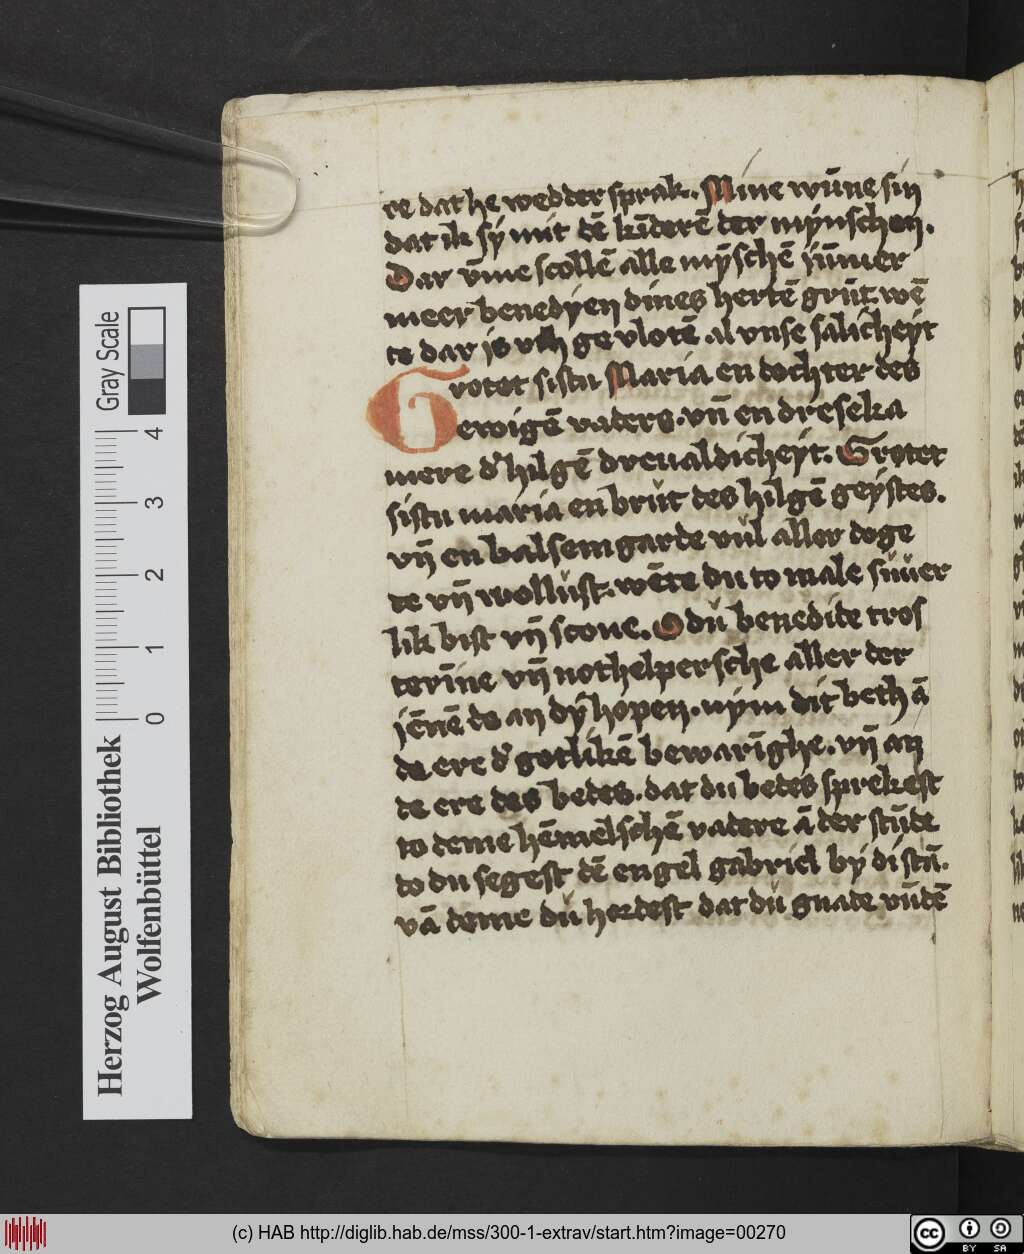 re dat he wedder sprak. Mine wūne sin
dat ik sy mit dē kīderē der mynschen.
Dar vme scollē alle myschē jūmer
meer benedyen dines hertē grūt. wē
te dar is vth ge vlotē. al vnse salicheyt
Grotet sistu Maria en dochter des
ewigē vaders. vn̄ en dreseka
mere d' hilgē dreualdicheyt. Grotet
sistu maria en brut des hilgē geystes.
vn̄ en balsem garde vul aller doge
de vn̄ wollust. wēte du to male suuer
lik bist vn̄ scone. O du benedide tros
terīne vn̄ nothelpersche aller der
jēnē de an dy hopen. nym dit beth ā
de ere d' gotlikē bewarīghe. vn̄ an
de ere des bedes. dat du bedes sprekest
to deme hēmelschē vadere ā der stūde
do du segest dē engel gabriel by di stā.
vā deme du hordest dat du gnade vūdē
Herzog August Bibliothek
Wolfenbüttel
Gray Scale
0 1 2 3 4
(c) HAB http://diglib.hab.de/mss/300-1-extrav/start.htm?image=00270
cc BY SA